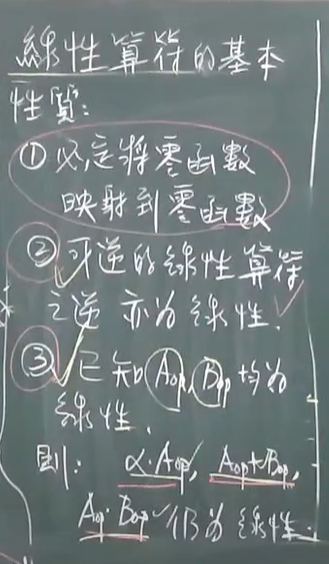 線性算符的基本
性質:
① 必定將零函數
映射到零函數
② 可逆的線性算符
之逆 亦為線性.
③ 已知 Aop, Bop 均為
線性.
則: α·Aop, Aop+Bop,
Aop·Bop 仍為線性.